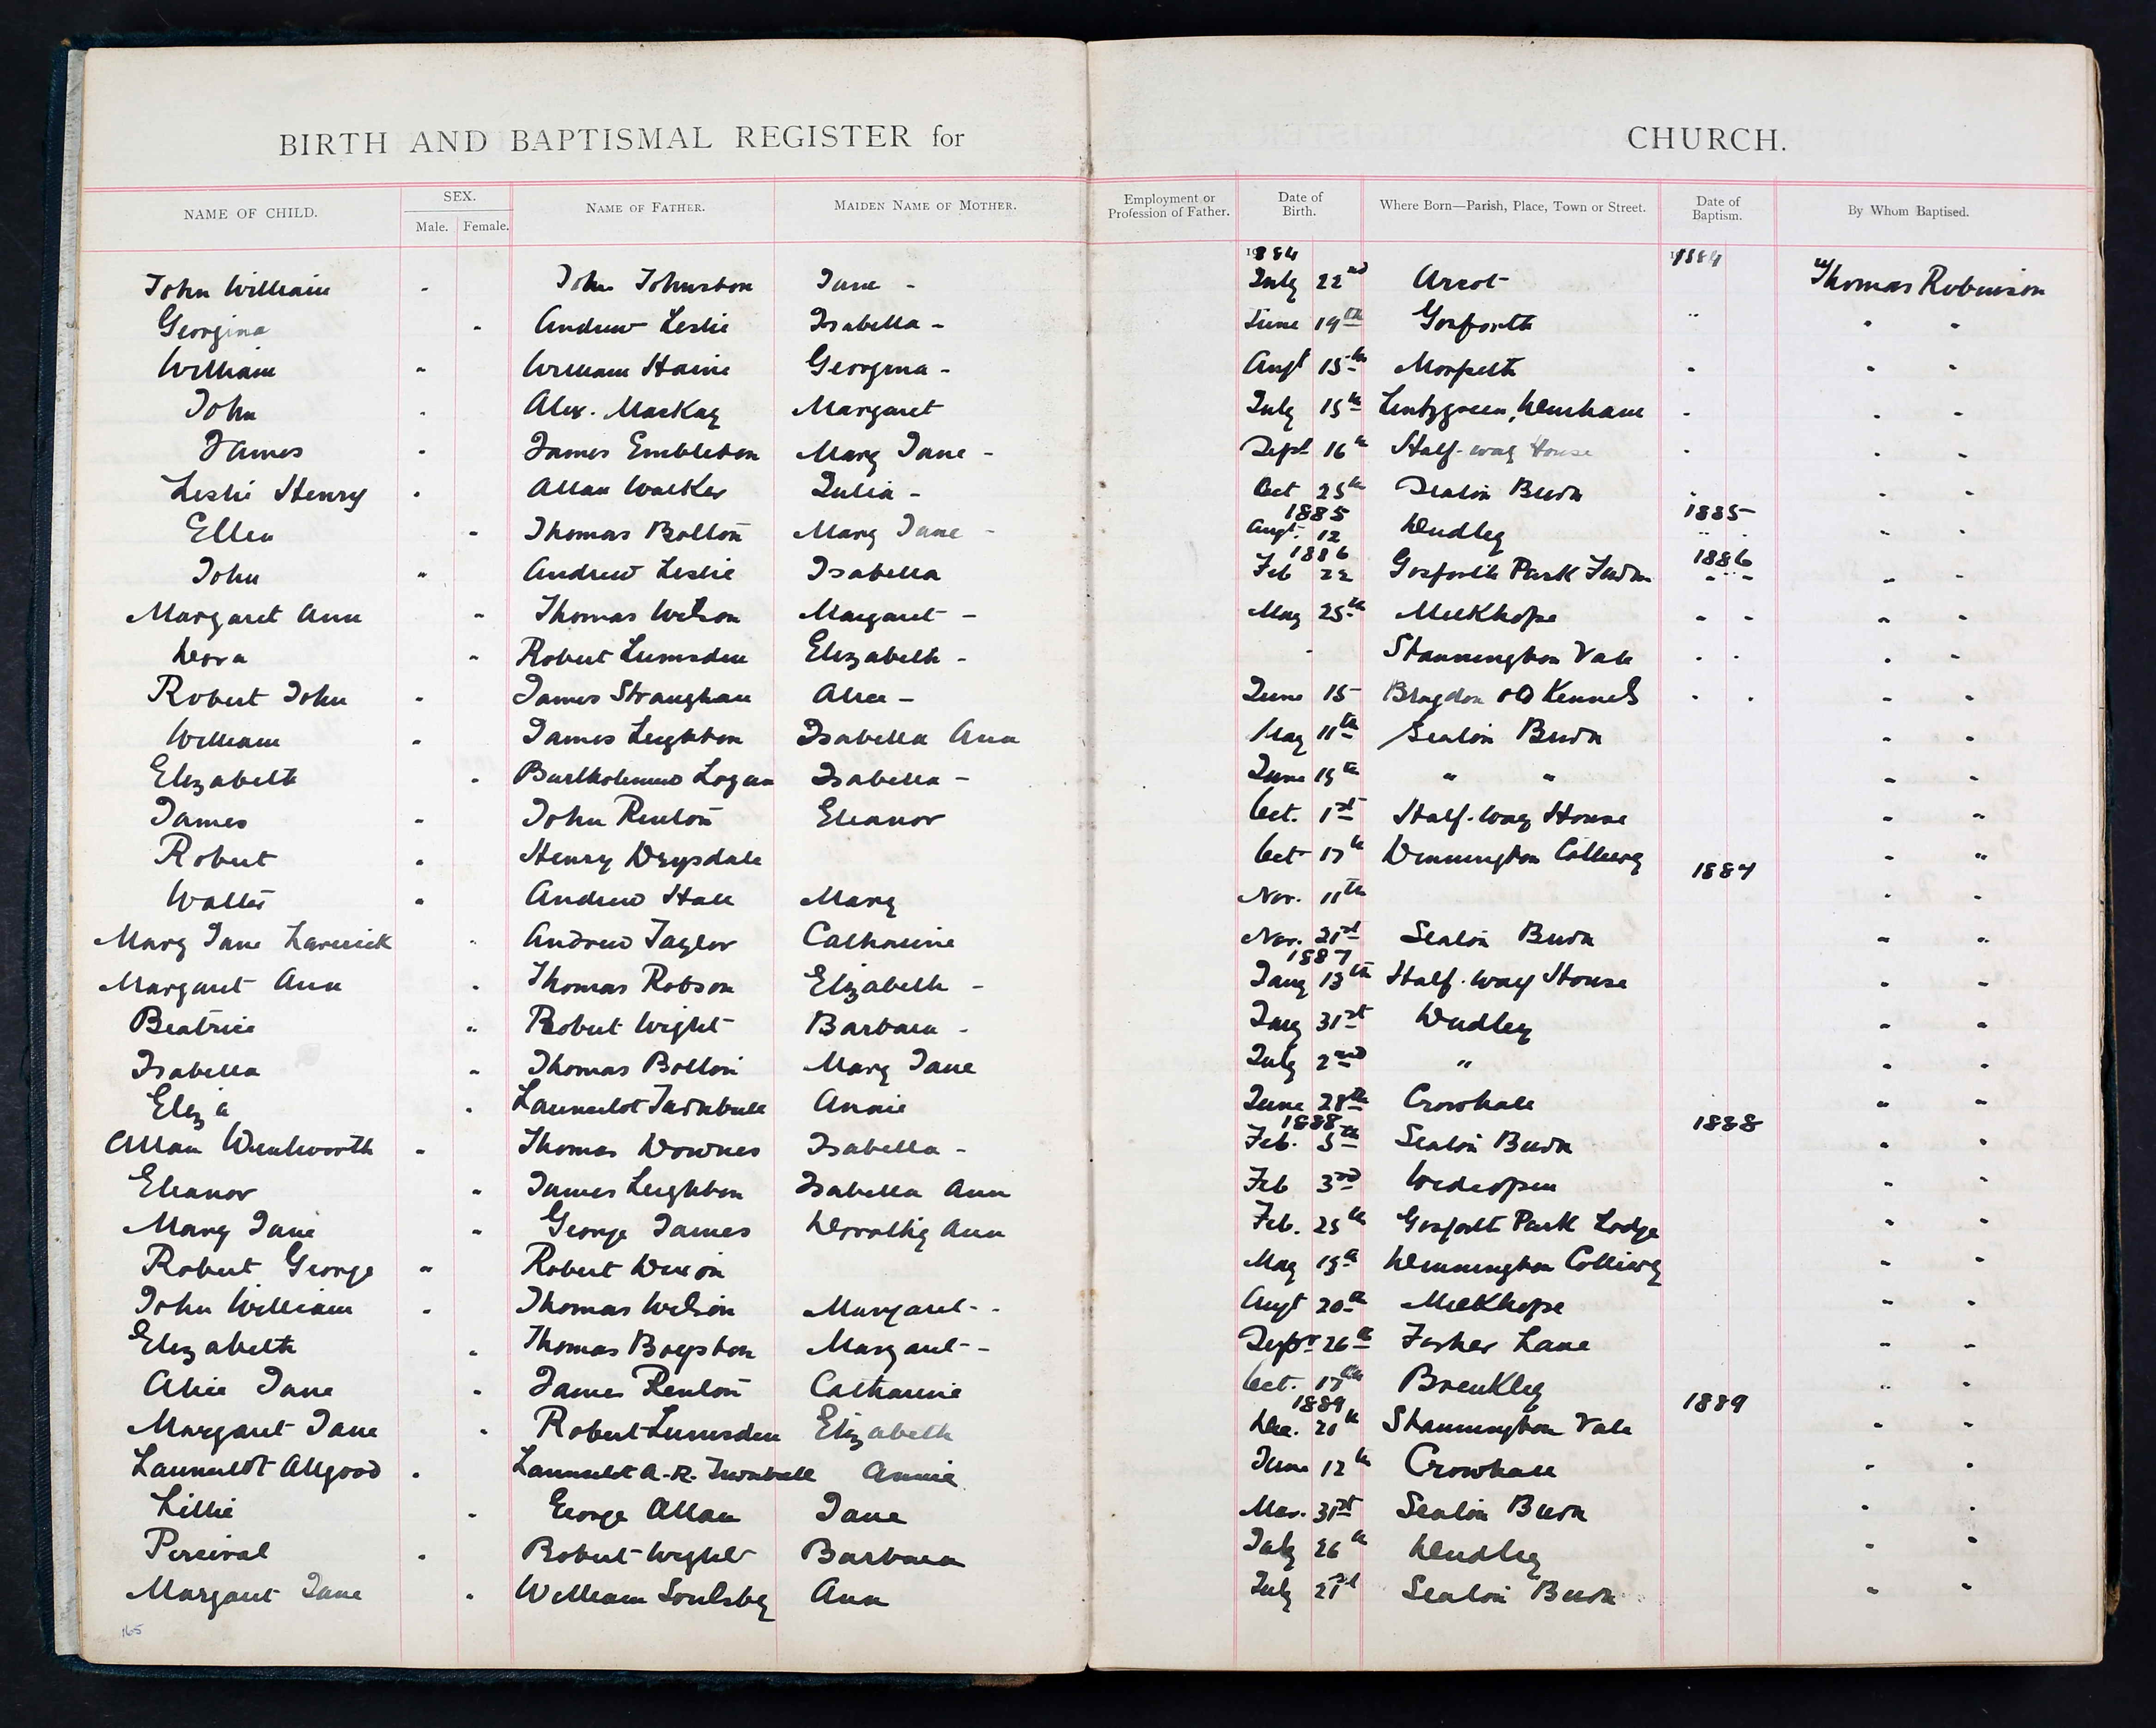 BIRTH AND BAPTISMAL REGISTER for CHURCH.
NAME OF CHILD. SEX. Male. Female. NAME OF FATHER. MAIDEN NAME OF MOTHER. Employment or Profession of Father. Date of Birth. Where Born—Parish, Place, Town or Street. Date of Baptism. By Whom Baptised.
1884 1884
John William - John Johnston Jane - July 22nd Arcot Thomas Robinson
Georgina - Andrew Leslie Isabella - June 19th Gosforth " - -
William - William Haine Georgina - Augt 15th Morpeth - - -
John - Alex. MacKay Margaret July 15th Lintzgreen, Durham - - -
James - James Embleton Mary Jane - Sept 16th Half-way House - - -
Leslie Henry - Allan Walker Julia - Oct 25th Seaton Burn - - -
1885 1885
Ellen - Thomas Bolton Mary Jane - Augt. 12 Dudley - - - -
1886 1886
John - Andrew Leslie Isabella Feb 22 Gosforth Park Farm - - - -
Margaret Ann - Thomas Wilson Margaret - May 25th Milkhope - - - -
Dora - Robert Lumsden Elizabeth - - Stannington Vale - - - -
Robert John - James Straughan Alice - June 15 Kennels - - - -
William - James Leighton Isabella Ann May 11th Seaton Burn - -
Elizabeth - Bartholomew Logan Isabella - June 15th " " - -
James - John Renton Eleanor Oct. 1st Half-way House - "
Robert - Henry Drysdale Oct 17th Dinnington Colliery - "
1887
Walter - Andrew Hall Mary Nov. 11th - -
Mary Jane Laverick - Andrew Taylor Catharine Nov. 21st Seaton Burn - "
1887
Margaret Ann - Thomas Robson Elizabeth - Jany 13th Half-way House - -
Beatrice " Robert Wight Barbara - Jany 31st Dudley - -
Isabella - Thomas Bolton Mary Jane July 2nd " - -
Eliza - Launcelot Turnbull Annie June 28th Crowhall - -
1888 1888
Allan Wentworth - Thomas Downes Isabella - Feb. 5th Seaton Burn - -
Eleanor - James Leighton Isabella Ann Feb 3rd Wideopen - -
Mary Jane - George James Dorothy Ann Feb. 25th Gosforth Park Lodge - -
Robert George " Robert Dixon May 13th Dinnington Colliery - -
John William - Thomas Wilson Margaret - - Augt 20th Milkhope - -
Elizabeth - Thomas Boyston Margaret - - Sepr 26th Fisher Lane - -
Alice Jane - James Renton Catharine Oct. 17th Brenkley " -
1889 1889
Margaret Jane - Robert Lumsden Elizabeth Dec. 20th Stannington Vale - -
Launcelot Allgood - Launcelot A.R. Turnbull Annie June 12th Crowhall - -
Lillie - George Allan Jane Mar. 31st Seaton Burn - -
Percival - Robert Wight Barbara July 26th Dudley - -
Margaret Jane - William Soulsby Ann July 21st Seaton Burn " -
165